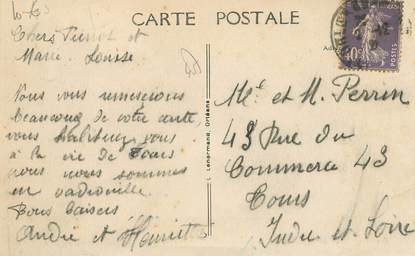 CARTE POSTALE
Chers Pierrot et
Marie-Louise
Nous vous remercions
beaucoup de votre carte
vous habituez vous
à la vie de Tours
nous nous sommes
en vadrouille
Bons baisers
André et Henriette
Lenormand, Orléans
POSTES
40c
Me et M. Perrin
43 Rue du
Commerce 43
Tours
Indre et Loire